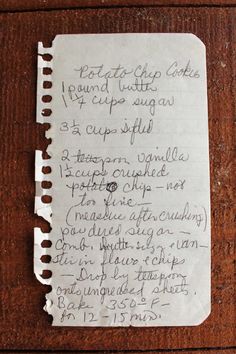 Potato Chip Cookies
1 pound butter
1 1/4 cups sugar
3 1/2 cups sifted
2 teaspoon vanilla
1 1/2 cups crushed
potato chip - not
too fine -
(measure after crushing)
powdered sugar -
Comb. butter sug + van -
stir in flour + chips
- Drop by teaspoon
onto ungreased sheets.
Bake 350° F -
for 12 - 15 min.